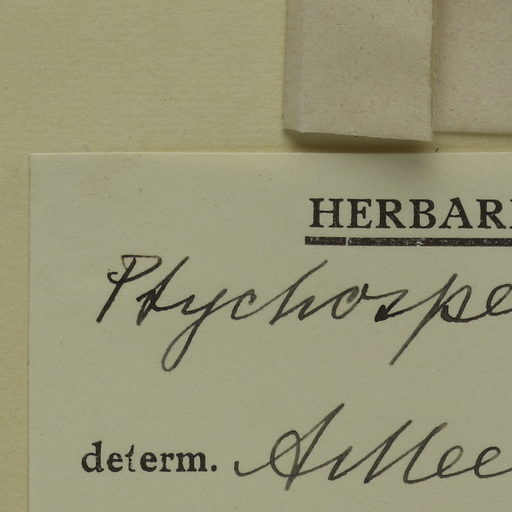 HERBAR
Ptychospe
determ. A. Mee